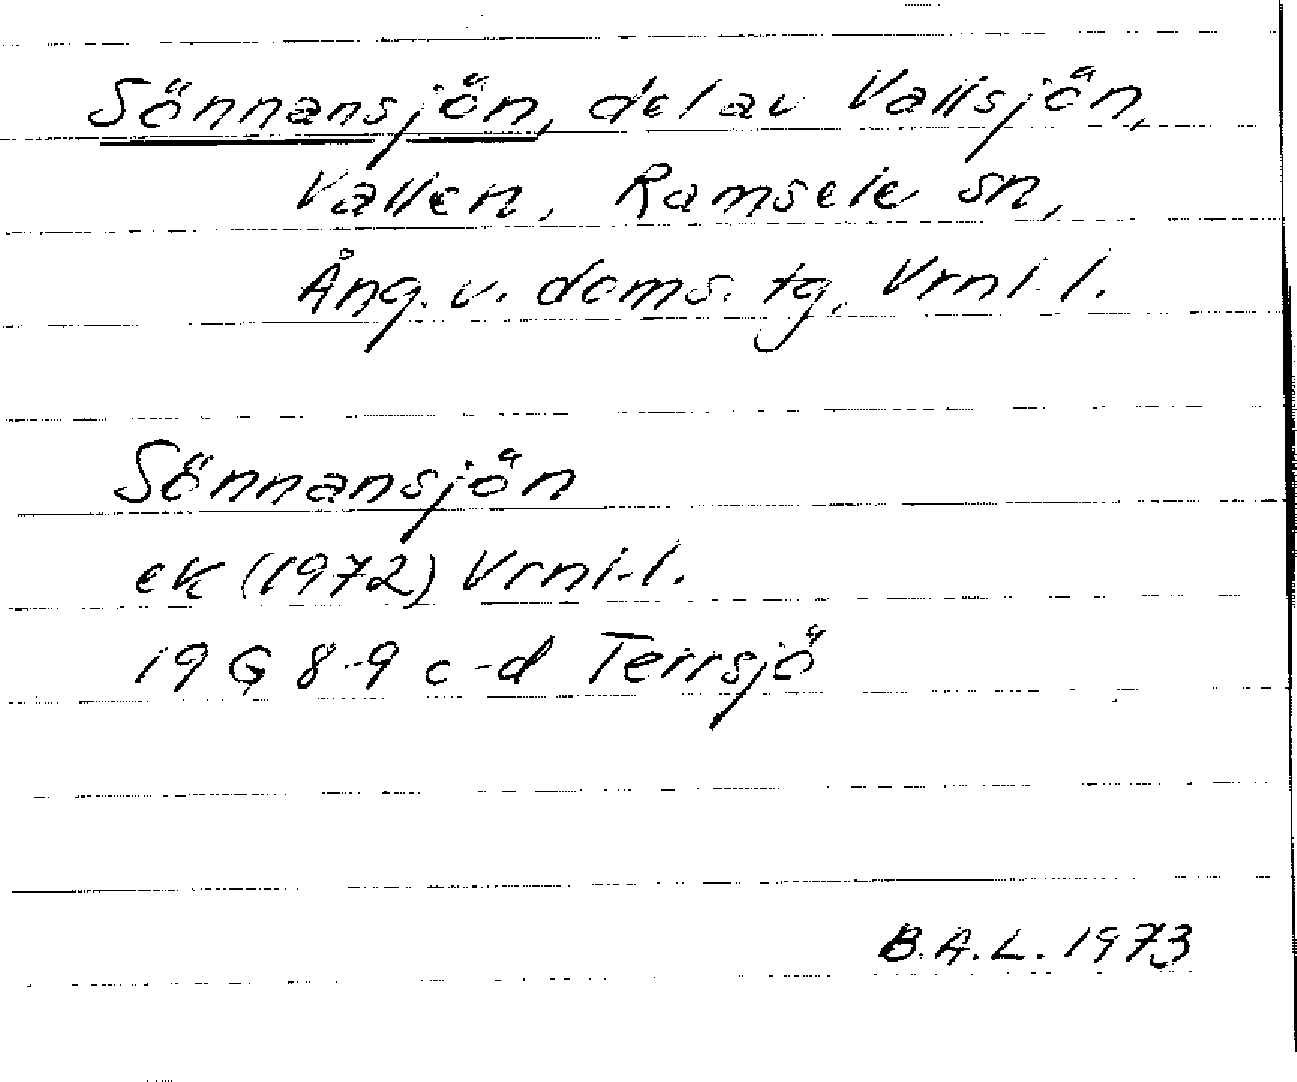 Sönnansjön, del av Vallsjön,
Vallen, Ramsele sn,
Ång. v. doms. tg, Vrnl. l.
Sönnansjön
ek (1972) Vrnl. l.
19 G 8-9 c-d Terrsjö
B.A.L. 1973